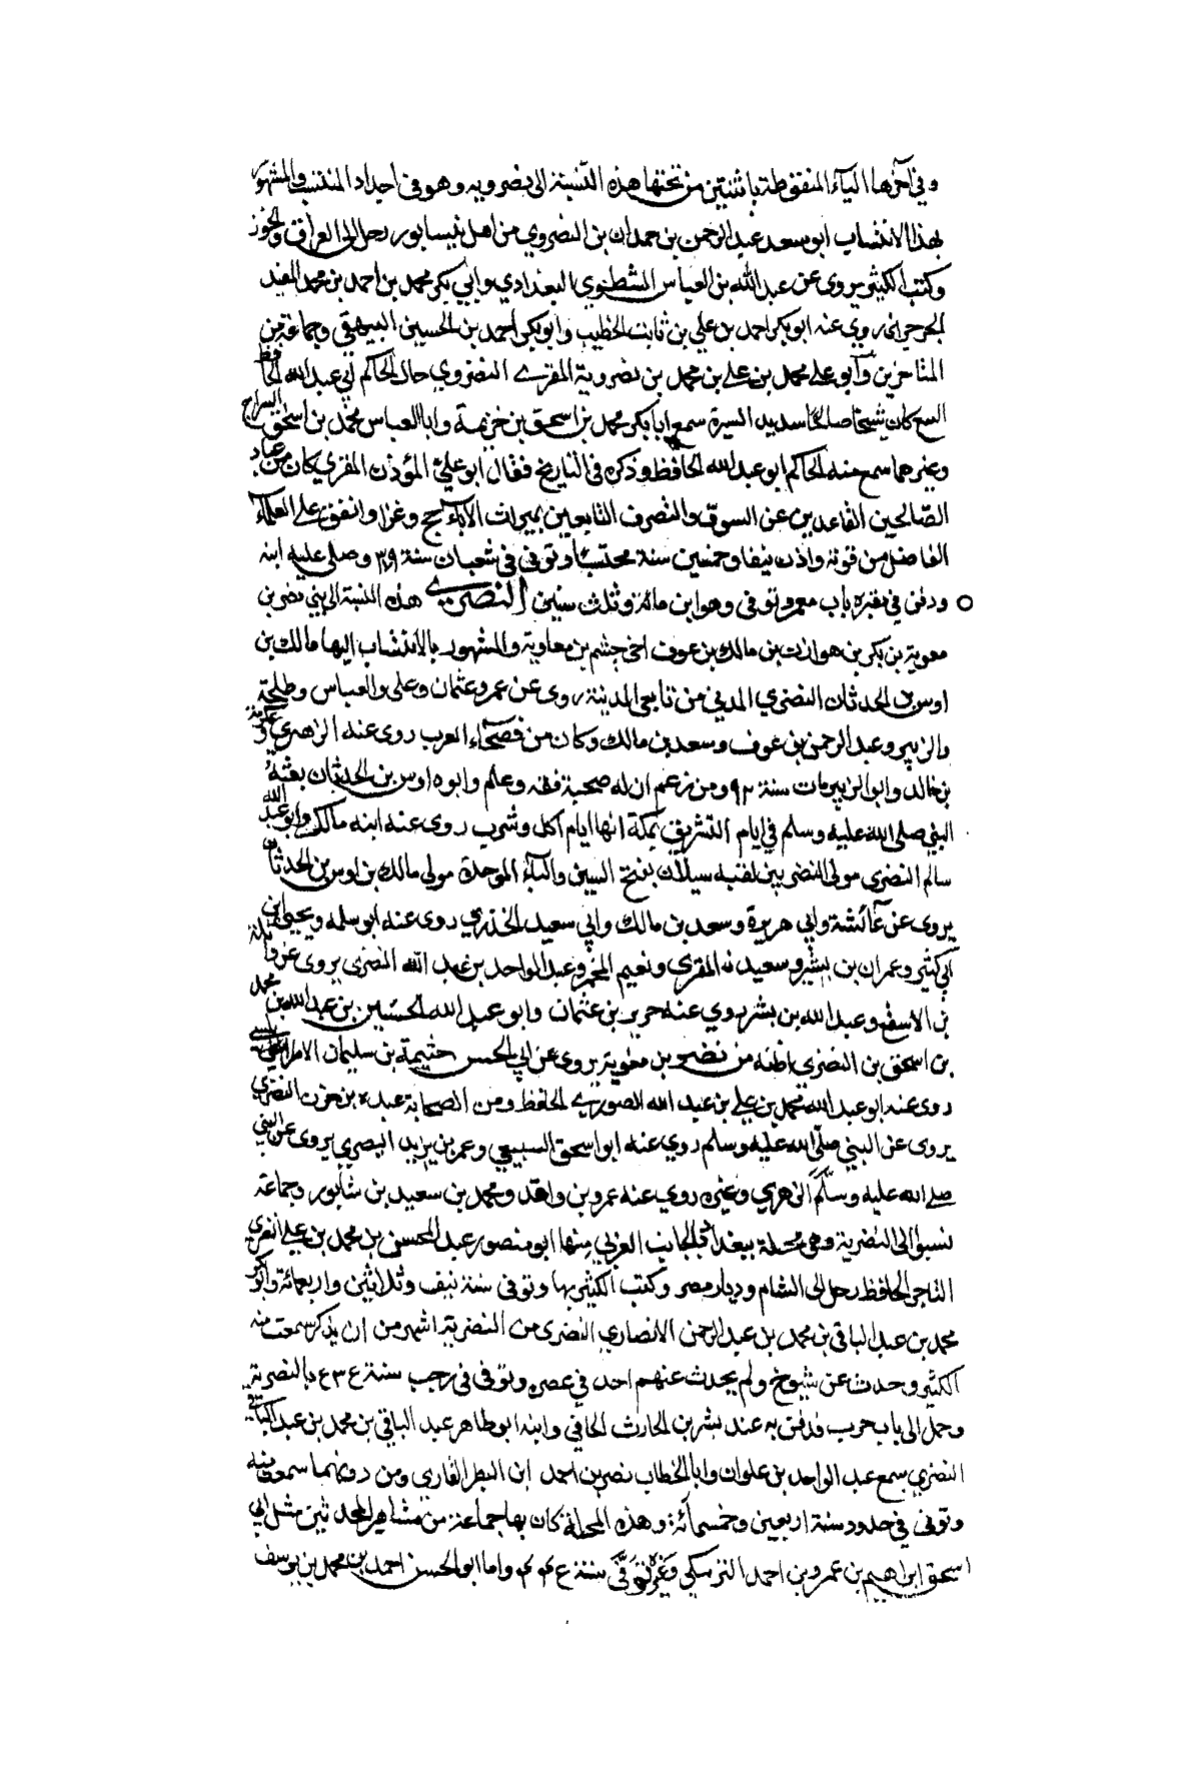 وفي آخرها الياء المنقوطة باثنتين من تحتها هذه النسبة الى نضرويه وهو في اجداد المنتسب والمشهور
بهذا الانتساب ابو سعد عبد الرحمن بن حمدان بن النضروي من اهل نيسابور رحل الى العراق
وكتب الكثير يروى عن عبد الله بن العباس الشطوي البغدادي وابي بكر محمد بن احمد بن محمد المفيد
الجرجراني روى عنه ابو بكر احمد بن علي بن ثابت الخطيب وابو بكر احمد بن الحسين البيهقي وجماعة من
المتاخرين وابو علي محمد بن علي بن محمد بن نضروية المقرى النضروي خال الحاكم ابي عبد الله الحافظ
البيع كان شيخا صالحا سديد السيرة سمع ابا بكر محمد بن اسحق بن خزيمة وابا العباس محمد بن اسحق السراج
وغيرهما سمع منه الحاكم ابو عبد الله الحافظ وذكره في التاريخ فقال ابو علي المؤذن المقرى كان من عباد
الصالحين القاعدين عن السوق والتصرف القانعين بميراث الآباء حج وغزا وانفق على العلماء
الفاضل من قوته واذن نيفا وخمسين سنة محتسبا وتوفى في شعبان سنة ٣٧٩ وصلى عليه ابنه
ودفن في مقبرة باب معمر وتوفى وهو ابن مائة وثلث سنين النصرى هذه النسبة الى بني نصر بن
معوية بن بكر بن هوازن بن مالك بن عوف اخى جشم بن معاوية والمشهور بالانتساب اليها مالك بن
اوس بن الحدثان النضري المدني من تابعى المدينة روى عن عمر وعثمان وعلى والعباس وطلحة
والزبير وعبد الرحمن بن عوف وسعد بن مالك وكان من فصحاء العرب روى عنه الزهرى وعكرمة
بن خالد وابو الزبير مات سنة ٩٢ ومن زعم ان له صحبة فقد وهم وابوه اوس بن الحدثان بعثه
النبي صلى الله عليه وسلم في ايام التشريق بمكة انها ايام اكل وشرب روى عنه ابنه مالك وابو عبد الله
سالم النضرى مولى النضريين لقبه سبلان بفتح السين والباء الموحدة مولى مالك بن اوس بن الحدثان
يروى عن عائشة وابي هريرة وسعد بن مالك وابي سعيد الخدري روى عنه ابو سلمه ويحيى بن
ابي كثير وعمران بن بشير وسعيد المقرى ونعيم المجمر وعبد الواحد بن عبد الله النضرى يروى عن واثلة
بن الاسقع وعبد الله بن بشر يروي عنه حريز بن عثمان وابو عبد الله الحسين بن عبد الله بن محمد
بن اسحق بن النضرى اظنه من نضر بن معوية يروى عن ابي الحسن خثيمة بن سليمان الاطرابلسي
روى عنه ابو عبد الله محمد بن علي بن عبد الله الصوري الحافظ ومن الصحابة عبده بن حزن النضري
يروى عن النبي صلى الله عليه وسلم روي عنه ابو اسحق السبيعي وعمر بن يزيد البصري يروى عن النبي
صلى الله عليه وسلم الزهري وغيره روي عنه عمرو بن واقد ومحمد بن سعيد بن شابور وجماعة
نسبوا الى النضرية وهى محلة ببغداد بالجانب الغربي منها ابو منصور عبد المحسن بن محمد بن علي النصري
التاجر الحافظ رحل الى الشام وديار مصر وكتب الكثير بها وتوفى سنة نيف وثلاثين واربعمائة وابو بكر
محمد بن عبد الباقي بن محمد بن عبد الرحمن الانصاري النضرى من النضرية اشهر من ان يذكر سمعت منه
الكثير وحدث عن شيوخ ولم يحدث عنهم احد في عصره وتوفى في رجب سنة بالنصرية
وحمل الى باب حرب فدفن به عند بشر بن الحارث الحافي وابنه ابو طاهر عبد الباقي بن محمد بن عبد الباقي
النضري سمع عبد الواحد بن علوان وابا الخطاب نصر بن احمد ابن البطر القارى ومن دونهما سمعت منه
وتوفى في حدود سنة اربعين وخمسمائة وهذه المحلة كان بها جماعة من مشاهير المحدثين مثل ابي
اسحق ابراهيم بن عمرو بن احمد البرمكي وغيره توفى سنة واما ابو الحسن احمد بن محمد بن يوسف